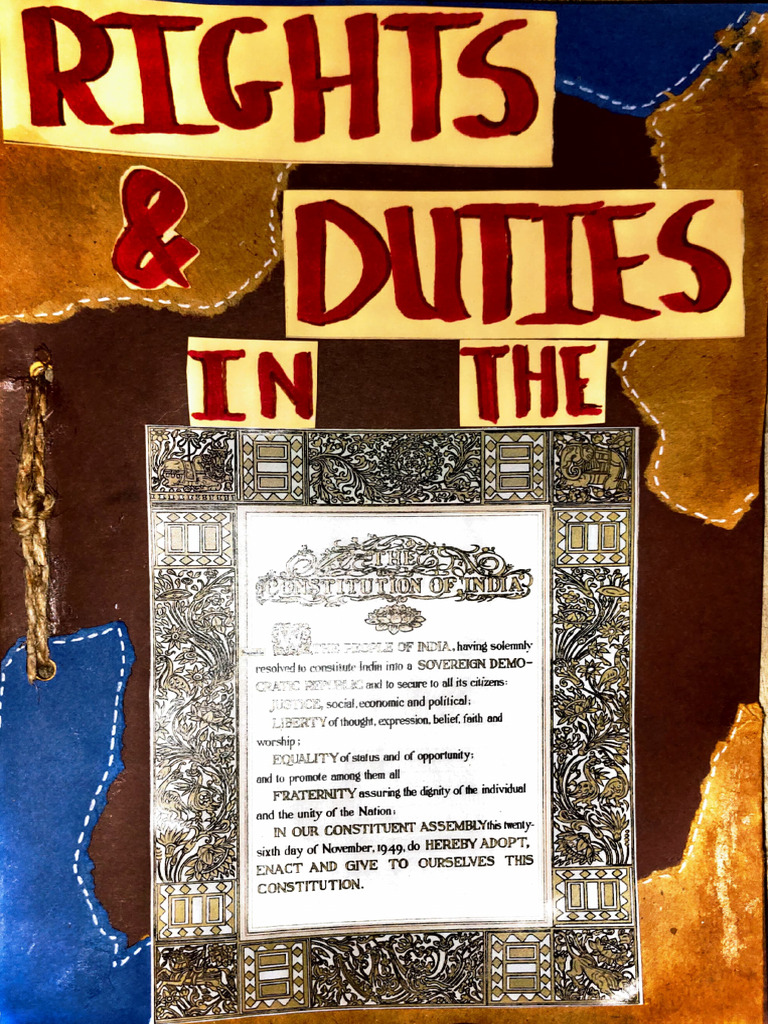 RIGHTS
&
DUTIES
IN THE
THE
CONSTITUTION OF INDIA
WE THE PEOPLE OF INDIA, having solemnly
resolved to constitute India into a SOVEREIGN DEMO-
CRATIC REPUBLIC and to secure to all its citizens:
JUSTICE, social, economic and political;
LIBERTY of thought, expression, belief, faith and
worship;
EQUALITY of status and of opportunity;
and to promote among them all
FRATERNITY assuring the dignity of the individual
and the unity of the Nation;
IN OUR CONSTITUENT ASSEMBLY this twenty-
sixth day of November, 1949, do HEREBY ADOPT,
ENACT AND GIVE TO OURSELVES THIS
CONSTITUTION.